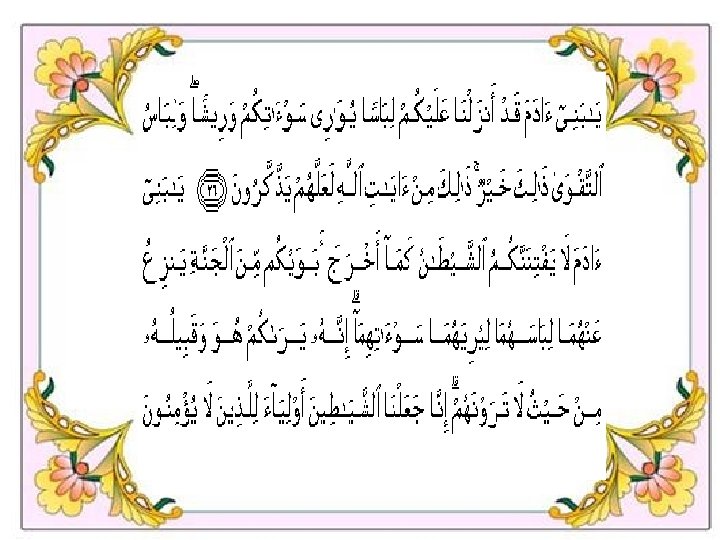 يَٰبَنِىٓ ءَادَمَ قَدْ أَنزَلْنَا عَلَيْكُمْ لِبَاسًا يُوَٰرِى سَوْءَٰتِكُمْ وَرِيشًا ۖ وَلِبَاسُ
ٱلتَّقْوَىٰ ذَٰلِكَ خَيْرٌ ۚ ذَٰلِكَ مِنْ ءَايَٰتِ ٱللَّهِ لَعَلَّهُمْ يَذَّكَّرُونَ ٢٦ يَٰبَنِىٓ
ءَادَمَ لَا يَفْتِنَنَّكُمُ ٱلشَّيْطَٰنُ كَمَآ أَخْرَجَ أَبَوَيْكُم مِّنَ ٱلْجَنَّةِ يَنزِعُ
عَنْهُمَا لِبَاسَهُمَا لِيُرِيَهُمَا سَوْءَٰتِهِمَآ ۗ إِنَّهُۥ يَرَىٰكُمْ هُوَ وَقَبِيلُهُۥ
مِنْ حَيْثُ لَا تَرَوْنَهُمْ ۗ إِنَّا جَعَلْنَا ٱلشَّيَٰطِينَ أَوْلِيَآءَ لِلَّذِينَ لَا يُؤْمِنُونَ